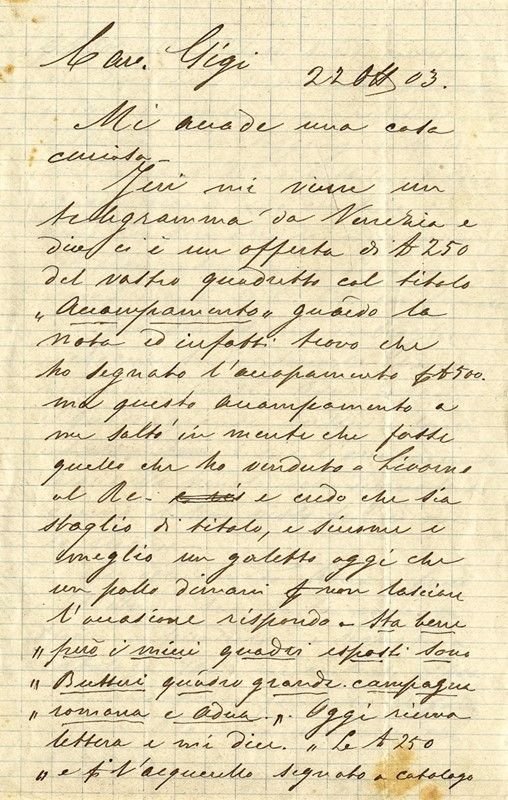 Caro. Gigi
22 Ott 03.
Mi acade una cosa
curiosa -
Jeri mi viene un
telegramma da Venezia e
dice ci è un offerta di £ 250
del vostro quadretto col titolo
„ Accampamento „ guardo la
nota ed infatti trovo che
ho segnato l'accapamento £ 500.
ma questo accampamento a
me saltò in mente che fosse
quello che ho venduto a Livorno
al Re - e credo che sia
sbaglio di titolo, e siccome e
meglio un galetto oggi che
un pollo dimani non lasciare
l'occasione rispondo - Sta bene
„ però i miei quadri esposti sono
„ Butteri quadro grande. campagna
„ romana e Adua. „. Oggi ricevo
lettera e mi dice. „ Le £ 250
„ e p l'acquerello segnato a catalogo